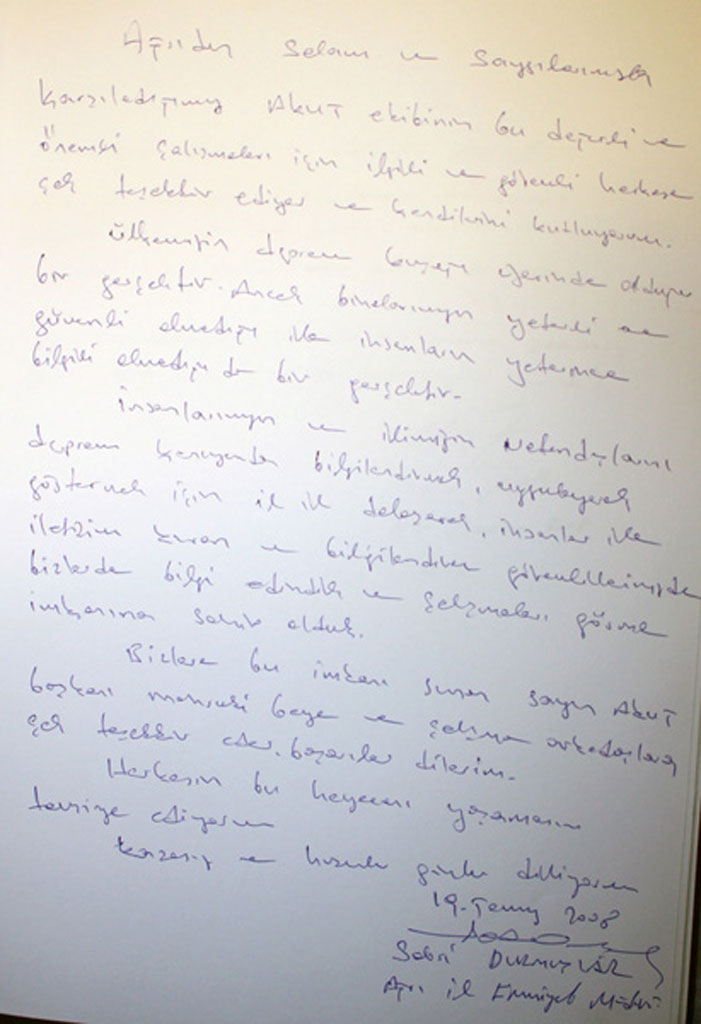 Ağrıdan Selam ve Saygılarımızla
karşıladığımız AKUT ekibinin bu değerli ve
önemli çalışmaları için ilgili ve görevli herkese
çok teşekkür ediyor ve kendilerini kutluyorum.
Ülkemizin deprem kuşağı üzerinde olduğu
bir gerçektir. Ancak binalarımızın yeterli ve
güvenli olmadığı ile insanların yeterince
bilgili olmadığı da bir gerçektir.
İnsanlarımızın ve ilimizin vatandaşlarını
deprem karşısında bilgilendirmek, uygulayarak
göstermek için il il dolaşarak, insanlar ile
iletişim kuran ve bilgilendiren görevlilerimizden
bizlerde bilgi edindik ve çalışmaları görme
imkanına sahip olduk.
Bizlere bu imkanı sunan sayın AKUT
başkanı beye ve çalışma arkadaşlarına
çok teşekkür eder, başarılar dilerim.
Herkesin bu heyecanı yaşamasını
tavsiye ediyorum
ve huzurlu günler diliyorum
19. Temmuz 2008
Sabri DURMUŞLAR
Ağrı il Emniyet Müdürü